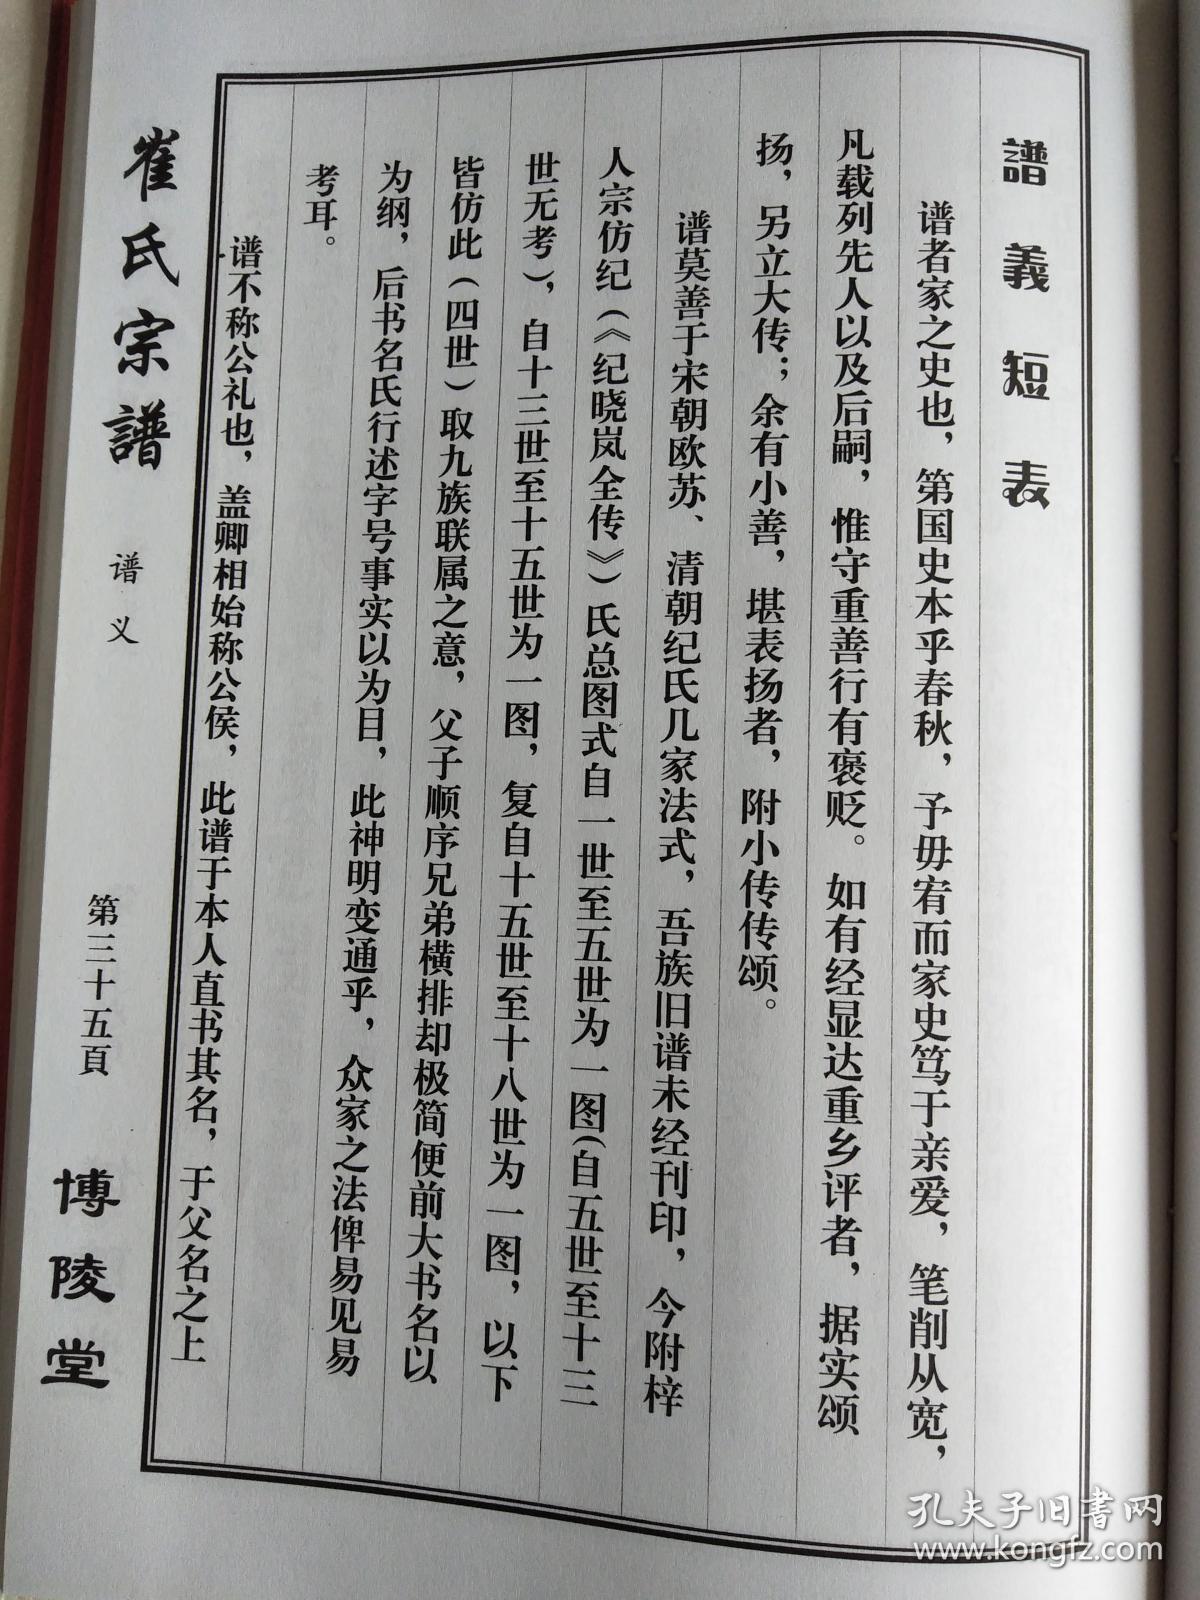 譜義短表
谱者家之史也，第国史本乎春秋，予毋宥而家史笃于亲爱，笔削从宽，
凡载列先人以及后嗣，惟守重善行有褒贬。如有经显达重乡评者，据实颂
扬，另立大传；余有小善，堪表扬者，附小传传颂。
谱莫善于宋朝欧苏、清朝纪氏几家法式，吾族旧谱未经刊印，今附梓
人宗仿纪（《纪晓岚全传》）氏总图式自一世至五世为一图（自五世至十三
世无考），自十三世至十五世为一图，复自十五世至十八世为一图，以下
皆仿此（四世）取九族联属之意，父子顺序兄弟横排却极简便前大书名以
为纲，后书名氏行述字号事实以为目，此神明变通乎，众家之法俾易见易
考耳。
谱不称公礼也，盖卿相始称公侯，此谱于本人直书其名，于父名之上
崔氏宗譜
谱义
第三十五頁
博陵堂
孔夫子旧书网
www.kongfz.com